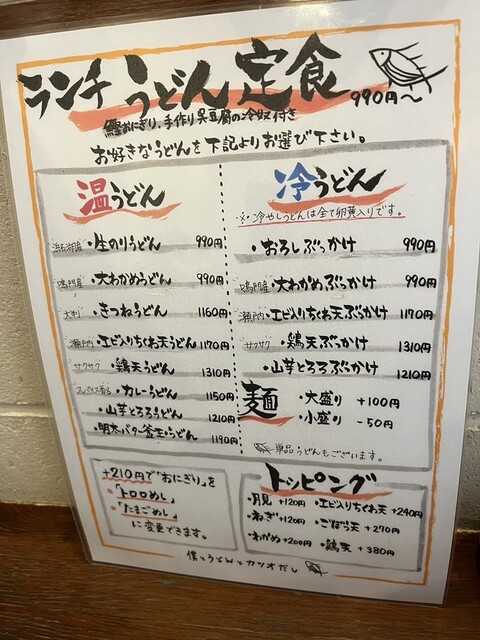 ランチ うどん 定食 990円〜
鰹おにぎり、手作り呉豆腐の冷奴付き
お好きなうどんを下記よりお選び下さい。
温うどん
浜名湖産 ・生のりうどん 990円
鳴門産 ・大わかめうどん 990円
大判 ・きつねうどん 1160円
瀬戸内 ・エビ入りちくわ天うどん 1170円
サクサク ・鶏天うどん 1310円
スパイス香る ・カレーうどん 1150円
・山芋とろろうどん 1210円
・明太バター釜玉うどん 1190円
冷うどん
※冷やしうどんは全て卵黄入りです。
・おろしぶっかけ 990円
鳴門産 ・大わかめぶっかけ 990円
瀬戸内 ・エビ入りちくわ天ぶっかけ 1170円
サクサク ・鶏天ぶっかけ 1310円
・山芋とろろぶっかけ 1210円
麺 ・大盛り +100円
・小盛り -50円
単品うどんもございます。
+210円で「おにぎり」を
・「トロロめし」
・「たまごめし」
に変更できます。
トッピング
・月見 +120円 ・エビ入りちくわ天 +240円
・ねぎ +120円 ・ごぼう天 +270円
・わかめ +200円 ・鶏天 +380円
僕とうどんとカツオだし